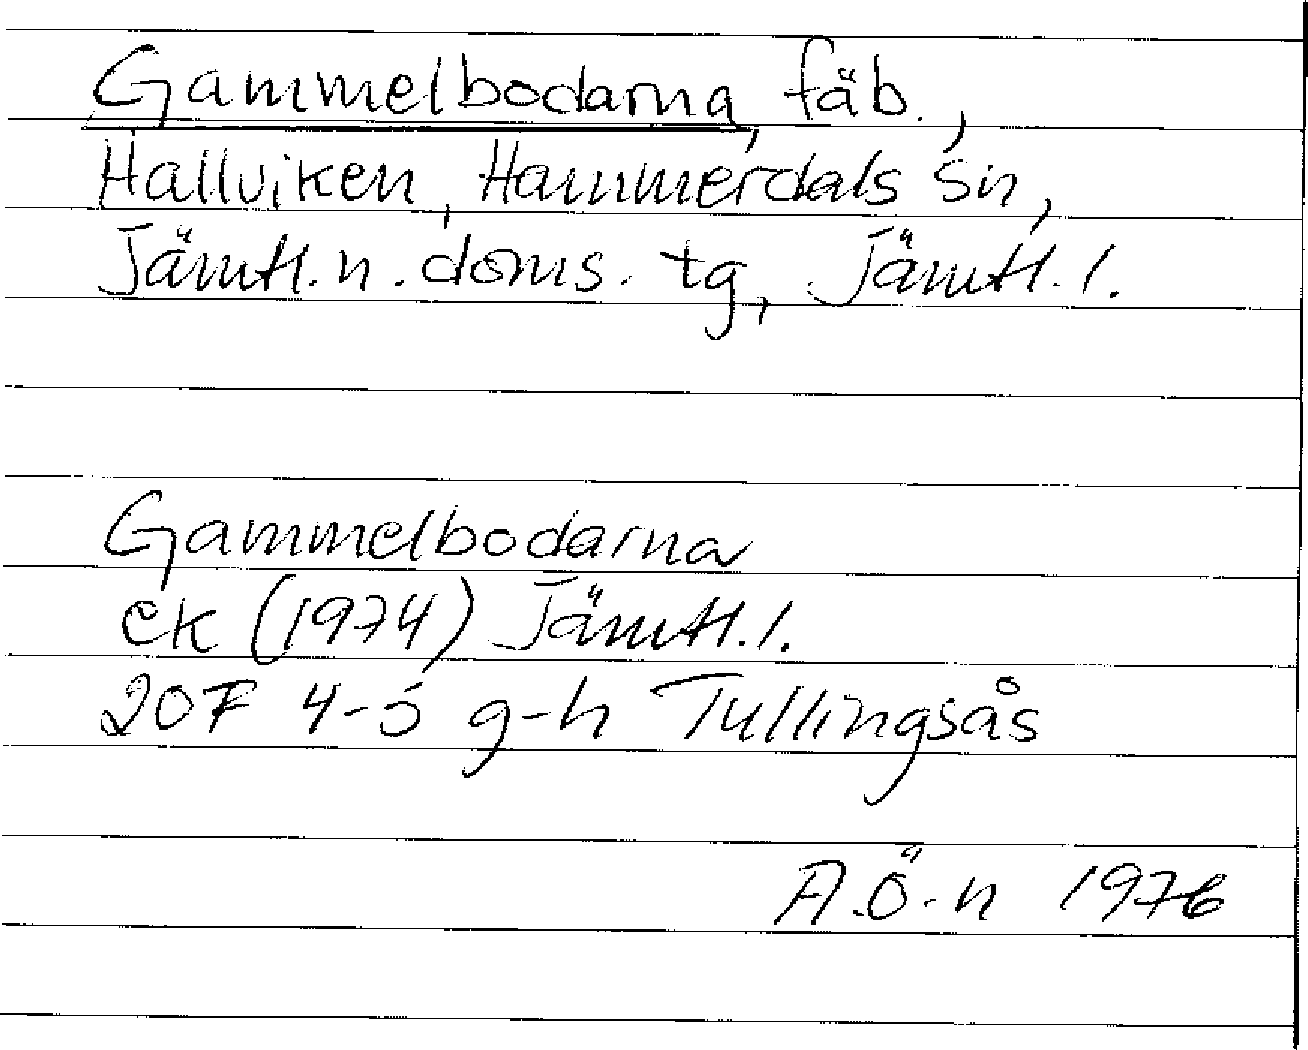 Gammelbodarna, fäb.,
Hallviken, Hammerdals sn,
Jämtl. n. doms. tg, Jämtl. l.
Gammelbodarna
ek (1974) Jämtl. l.
20F 4-5 g-h Tullingsås
A.Ö-n 1976